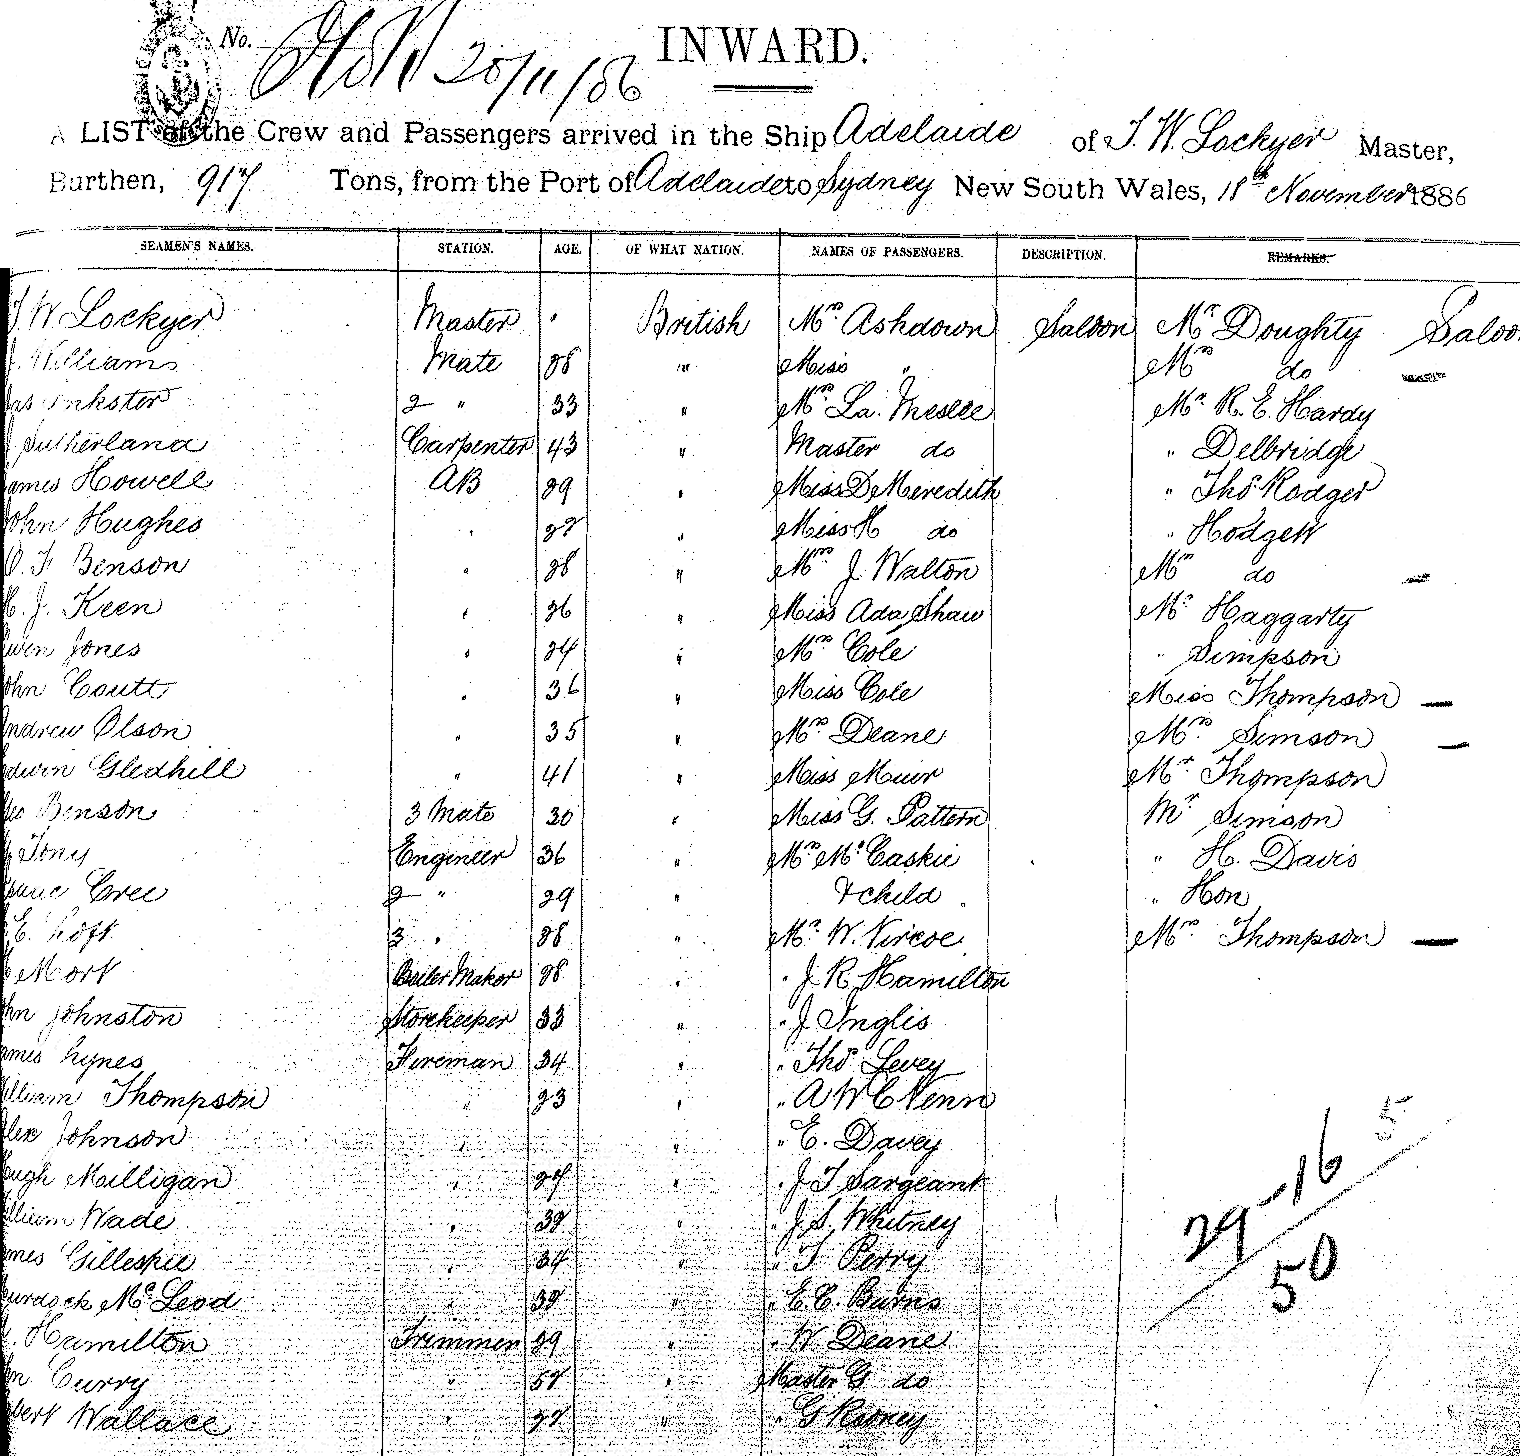 No. 20/11/86
INWARD.
A LIST of the Crew and Passengers arrived in the Ship Adelaide of T. W. Lockyer Master,
Burthen, 917 Tons, from the Port of Adelaide to Sydney New South Wales, 18th November 1886
SEAMEN'S NAMES. STATION. AGE. OF WHAT NATION. NAMES OF PASSENGERS. DESCRIPTION. REMARKS.
W Lockyer Master British Mrs Ashdown Saloon Mr Doughty Saloo
Williams Mate 28 " Miss " Mrs do
Inkster 2 " 33 " Mrs La Meslee Mr R. E. Hardy
Sutherland Carpenter 43 " Master do " Delbridge
ames Howell AB 29 " Miss D Meredith " Thos Rodger
John Hughes " 27 " Miss H do " Hodgett
F Benson " 28 " Mrs J Walton Mrs do
H. J. Keen " 26 " Miss Ada Shaw Mr Haggarty
wen Jones " 24 " Mrs Cole " Simpson
ohn Coutt " 36 " Miss Cole Miss Thompson
Andrew Olson " 35 " Mrs Deane Mrs Simson
dwin Gledhill " 41 " Miss Muir Mr Thompson
Geo Benson 3 Mate 30 " Miss G. Pattern Mr Simson
Tony Engineer 36 " Mrs McCaskie " H. Davis
Cree 2 " 29 " & child " Hon
E. Loft 3 " 28 " Mr W. Vircoe Mrs Thompson
Mort Boiler Maker 28 " " J R Hamilton
hn Johnston Storekeeper 33 " " J Inglis
ames Lynes Fireman 34 " " Thos Levey
illiam Thompson " 23 " " A W C Venn
Alex Johnson " " " E. Davey
Hugh Milligan " 24 " " J T Sargeant
illiam Wade " 32 " " J. S. Whitney
ames Gillespie " 34 " " T Perry
urdock McLeod " 32 " " E. C. Burns
Hamilton Trimmer 29 " " W Deane
hn Curry " 57 " Master G do
bert Wallace " 27 " " G Rodney
29-16 5
50